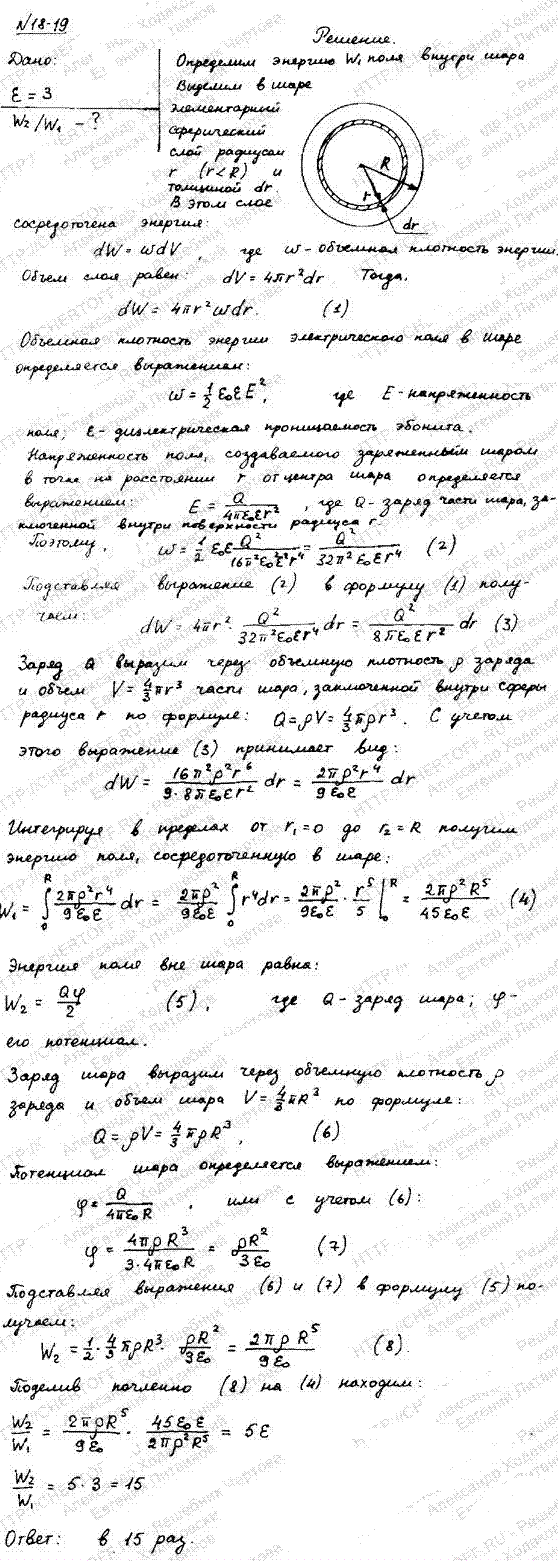 №18-19
Дано:
ε = 3
W₂/W₁ - ?
Решение.
Определим энергию W₁ поля внутри шара
Выделим в шаре
элементарный
сферический
слой радиусом
r (r<R) и
толщиной dr.
В этом слое
R
r
dr
сосредоточена энергия:
dW = ωdV, где ω - объемная плотность энергии.
Объем слоя равен: dV = 4πr²dr Тогда.
dW = 4πr²ωdr. (1)
Объемная плотность энергии электрического поля в шаре
определяется выражением:
ω = 1/2 ε₀εE², где E - напряженность
поля; ε - диэлектрическая проницаемость эбонита.
Напряженность поля, создаваемого заряженным шаром
в точке на расстоянии r от центра шара определяется
выражением: E = Q/(4πε₀εr²), где Q - заряд части шара, за-
ключенной внутри поверхности радиуса r.
Поэтому, ω = 1/2 ε₀ε Q²/(16π²ε₀²ε²r⁴) = Q²/(32π²ε₀εr⁴) (2)
Подставляя выражение (2) в формулу (1) полу-
чаем: dW = 4πr² · Q²/(32π²ε₀εr⁴) dr = Q²/(8πε₀εr²) dr (3)
Заряд Q выразим через объемную плотность ρ заряда
и объем V = 4/3 πr³ части шара, заключенной внутри сферы
радиуса r по формуле: Q = ρV = 4/3 πρr³. С учетом
этого выражение (3) принимает вид:
dW = 16π²ρ²r⁶/(9·8πε₀εr²) dr = 2πρ²r⁴/(9ε₀ε) dr
Интегрируя в пределах от r₁=0 до r₂=R получим
энергию поля, сосредоточенную в шаре:
W₁ = ∫₀ᴿ 2πρ²r⁴/(9ε₀ε) dr = 2πρ²/(9ε₀ε) ∫₀ᴿ r⁴dr = 2πρ²/(9ε₀ε) · r⁵/5 |₀ᴿ = 2πρ²R⁵/(45ε₀ε) (4)
Энергия поля вне шара равна:
W₂ = Qφ/2 (5), где Q - заряд шара; φ -
его потенциал.
Заряд шара выразим через объемную плотность ρ
заряда и объем шара V = 4/3 πR³ по формуле:
Q = ρV = 4/3 πρR³, (6)
Потенциал шара определяется выражением:
φ = Q/(4πε₀R), или с учетом (6):
φ = 4πρR³/(3·4πε₀R) = ρR²/(3ε₀) (7)
Подставляя выражения (6) и (7) в формулу (5) по-
лучаем:
W₂ = 1/2 · 4/3 πρR³ · ρR²/(3ε₀) = 2πρR⁵/(9ε₀) (8).
Поделив почленно (8) на (4) находим:
W₂/W₁ = 2πρR⁵/(9ε₀) · 45ε₀ε/(2πρ²R⁵) = 5ε
W₂/W₁ = 5·3 = 15
Ответ: в 15 раз.